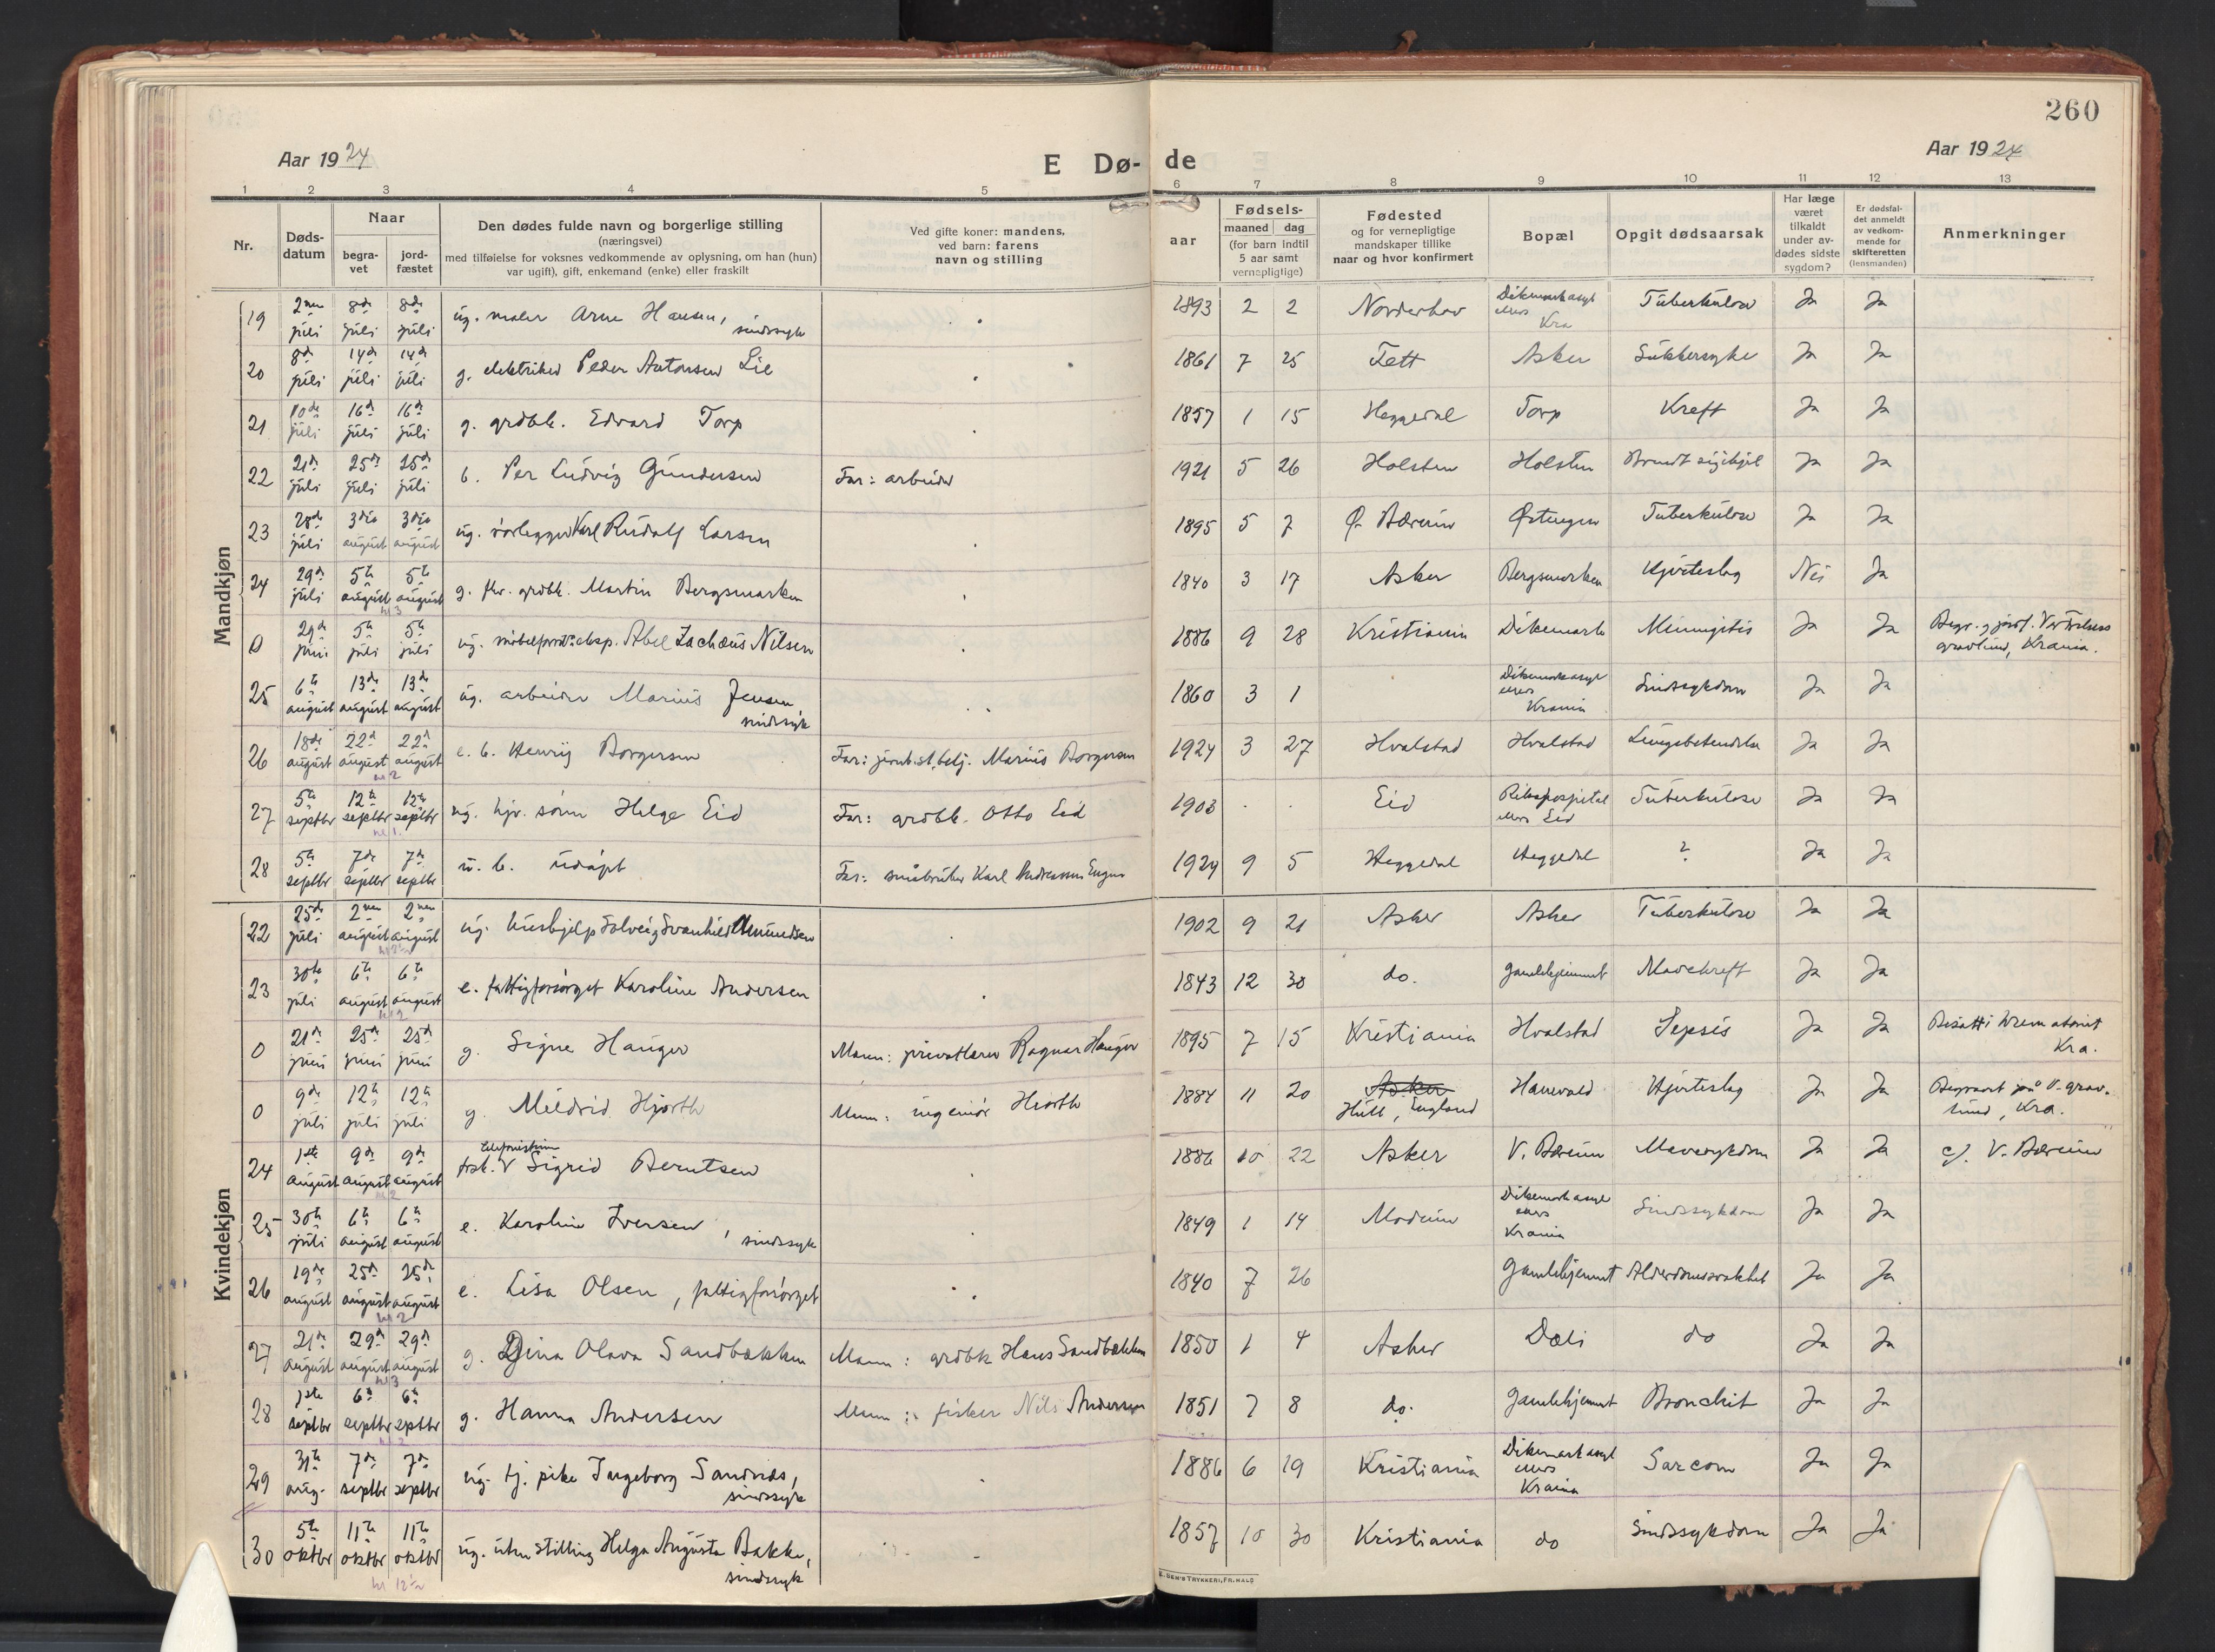 260
Aar 1924
E Dø- de
Aar 1924
1 2 3 4 5 6 7 8 9 10 11 12 13
Nr.
Døds-
datum
Naar
begra-
vet
jord-
fæstet
Den dødes fulde navn og borgerlige stilling
(næringsvei)
med tilføielse for voksnes vedkommende av oplysning, om han (hun)
var ugift), gift, enkemand (enke) eller fraskilt
Ved gifte koner: mandens,
ved barn: farens
navn og stilling
aar
Fødsels-
maaned dag
(for barn indtil
5 aar samt
vernepligtige)
Fødested
og for vernepligtige
mandskaper tillike
naar og hvor konfirmert
Bopæl
Opgit dødsaarsak
Har læge
været
tilkaldt
under av-
dødes sidste
sygdom?
Er dødsfal-
det anmeldt
av vedkom-
mende for
skifteretten
(lensmanden)
Anmerkninger
Mandkjøn
19 2nen juli 8de juli 8de juli ug. maler Arne Hansen, sindssyk 1893 2 2 Norderhov Dikemark asyl ellers Kra Tuberkulose Ja Ja
20 8de juli 14de juli 14de juli g. elektriker Peder Antonsen Lie 1861 7 25 Tett Asker Sukkersyke Ja Ja
21 10de juli 16de juli 16de juli g. grdbk. Edvard Torp 1857 1 15 Heggedal Torp Kreft Ja Ja
22 21de juli 25de juli 25de juli b. Per Ludvig Gundersen Far: arbeider 1921 5 26 Holsten Holsten Brændt sig ihjel Ja Ja
23 28de juli 3die august 3die august ug. rørlegger Karl Rudolf Larsen 1895 5 7 Ø. Bærum Østengen Tuberkulose Ja Ja
24 29de juli 5te august 5te august kl 3 g. fhv. grdbk. Martin Bergsmarken 1840 3 17 Asker Bergsmarken Hjerteslag Nei Ja
0 29de juni 5te juli 5te juli ug. eksp. Abel Zachæus Nilsen 1886 9 28 Kristiania Dikemark Meningitis Ja Ja Begr. og jordf. Vor Frelsers gravlund, Krania.
25 6te august 13de august 13de august ug. arbeider Marius Jensen sindssyk 1860 3 1 Dikemark asyl ellers Krania Sindssykdom Ja Ja
26 18de august 22de august 22de august kl 2 e. b. Henrij Borgersen Far: jernb.st.betj. Marius Borgersen 1924 3 27 Hvalstad Hvalstad Lungebetendelse Ja Ja
27 5te septbr 12te septbr 12te septbr kl 1. ug. hjv. sønn Helge Eid Far: grdbk. Otto Eid 1903 Eid Rikshospitalet ellers Eid Tuberkulose Ja Ja
28 5te septbr 7de septbr 7de septbr u. b. udøpt Far: småbruker Karl Andreassen Engen 1924 9 5 Heggedal Heggedal ? Ja Ja
Kvindekjøn
22 25de juli 2nen august 2nen august ug. hushjelp Solveig Svanhild Amundsen 1902 9 21 Asker Asker Tuberkulose Ja Ja
23 30te juli 6te august 6te august kl 2 e. fattigforsørget Karoline Andersen 1843 12 30 do. Gamlehjemmet Mavekreft Ja Ja
0 21de juni 25de juni 25de juni g. Signe Hauger Mann: privatlærer Ragnar Hauger 1895 7 15 Kristiania Hvalstad Sepsis Ja Ja Bisatt i krematoriet Kra.
0 9de juli 12te juli 12te juli g. Mildrid Hjorth Mann: ingeniør Hiorth 1884 11 20 Asker Hull, England Hanevold Hjerteslag Ja Ja Begravet på V. gravlund, Kra.
24 1ste august 9de august 9de august kl 2 frsk. telefonistinne Sigrid Berntsen 1886 10 22 Asker V. Bærum Mavesykdom Ja Ja cf. V. Bærum
25 30te juli 6te august 6te august e. Karoline Iversen, sindssyk 1849 1 14 Modum Dikemark asyl ellers Krania Sindssykdom Ja Ja
26 19de august 25de august 25de august kl 2 e. Lisa Olsen, fattigforsørget 1840 7 26 Gamlehjemmet Alderdomssvakhet Ja Ja
27 21de august 29de august 29de august kl 3 g. Dina Olava Sandbakken Mann: grdbk Hans Sandbakken 1850 1 4 Asker Dæli do Ja Ja
28 1ste septbr 6te septbr 6te septbr kl 2 g. Hanna Andersen Mann: fisker Nils Andersen 1851 7 8 do. Gamlehjemmet Bronchit Ja Ja
29 31te aug. 7de septbr 7de septbr ug. tj. pike Ingeborg Sandnæs, sindssyk 1886 6 19 Kristiania Dikemark asyl ellers Krania Sarcom Ja Ja
30 5te oktbr 11te oktbr 11te oktbr kl 12½ ug. uten stilling Helga Augusta Bakke, sindssyk 1857 10 30 Kristiania do Sindssykdom Ja Ja
SEM'S TRYKKERI, FR.HALD